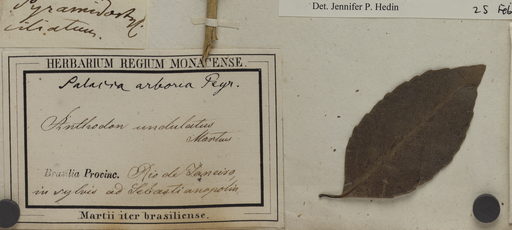 Pyramidost
ciliatum.
Det. Jennifer P. Hedin
25 Feb
HERBARIUM REGIUM MONACENSE.
Salacia arborea Peyr.
Anthodon undulatus
Martius
Brasilia Provinc. Rio de Janeiro,
in sylvis ad Sebastianopolin
Martii iter brasiliense.